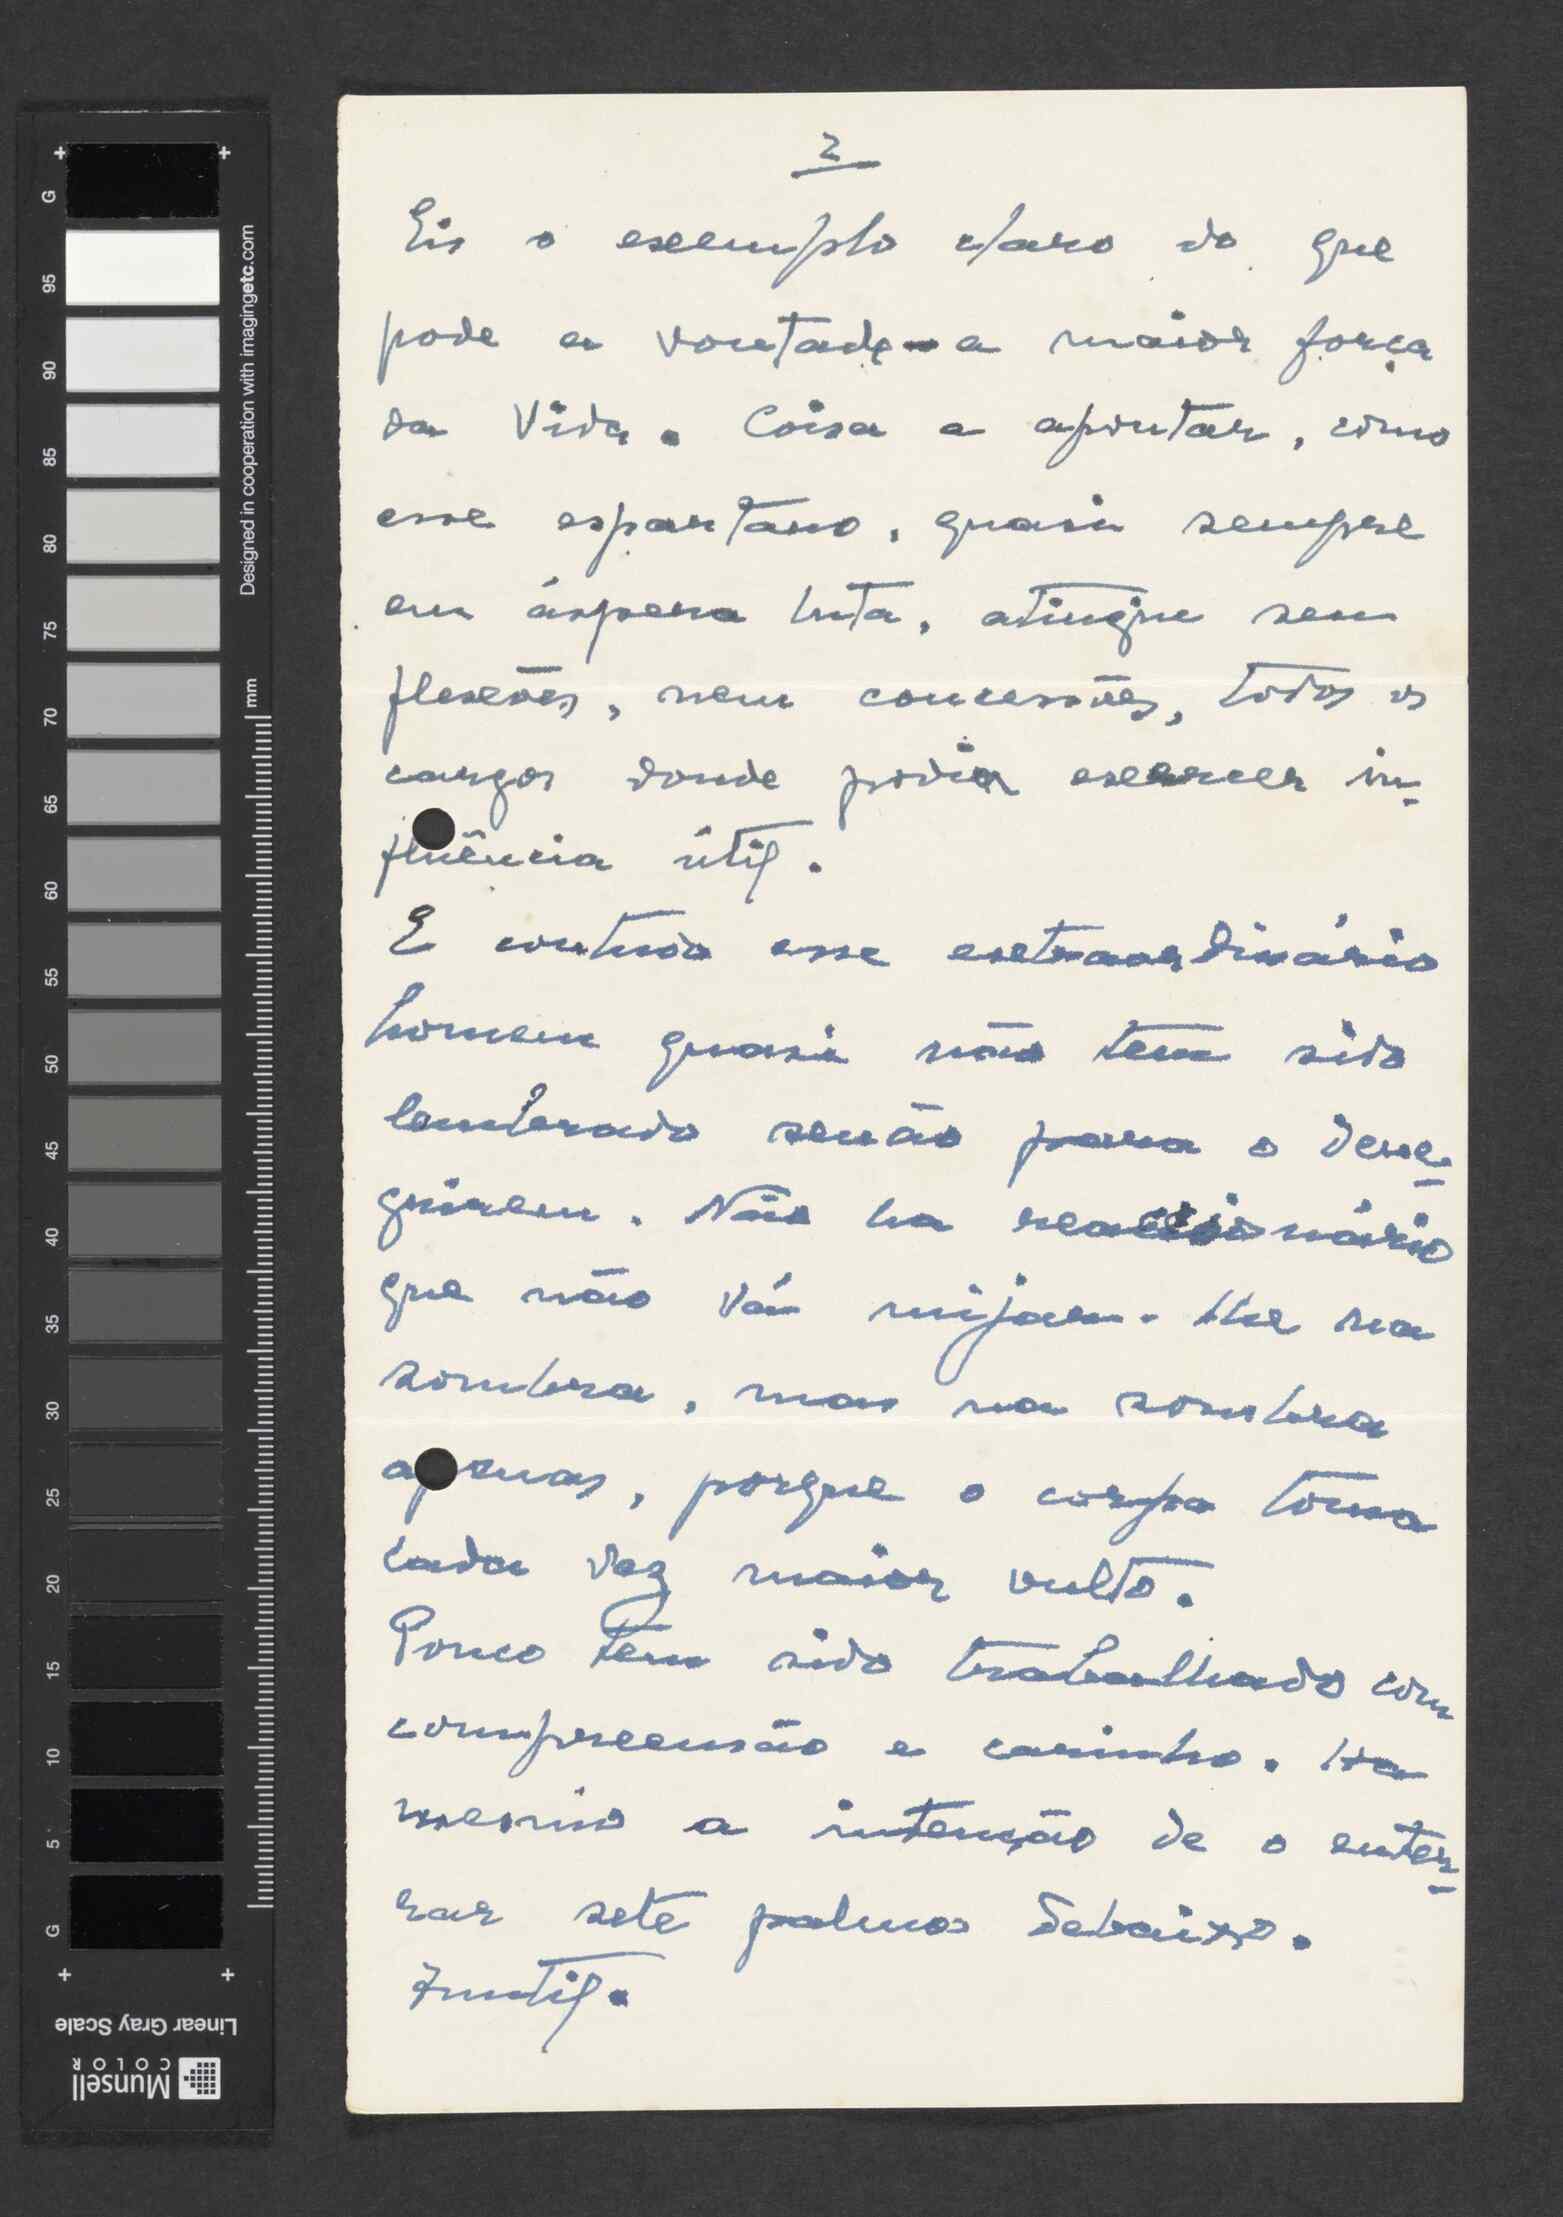 2
Eis o exemplo claro do que
pode a vontade - a maior força
da Vida. Coisa a apontar, como
esse espartano, quasi sempre
em áspera luta, atingiu sem
flexões, nem concessões, todos os
cargos donde podia exercer in-
fluência útil.
E contudo esse extraordinário
homem quasi não tem sido
lembrado senão para o
Não ha reaccionário
que não vá mijar-lhe na
sombra, mas na sombra
apenas, porque o corpo toma
cada vez maior vulto.
Pouco tem sido trabalhado com
compreensão e carinho. Ha
mesmo a intenção de o enter-
rar sete palmos debaixo.
Inutil.
G
95
90
85
80
75
70
65
60
55
50
45
40
35
30
25
20
15
10
5
G
mm
Designed in cooperation with imagingetc.com
Linear Gray Scale
Munsell
COLOR